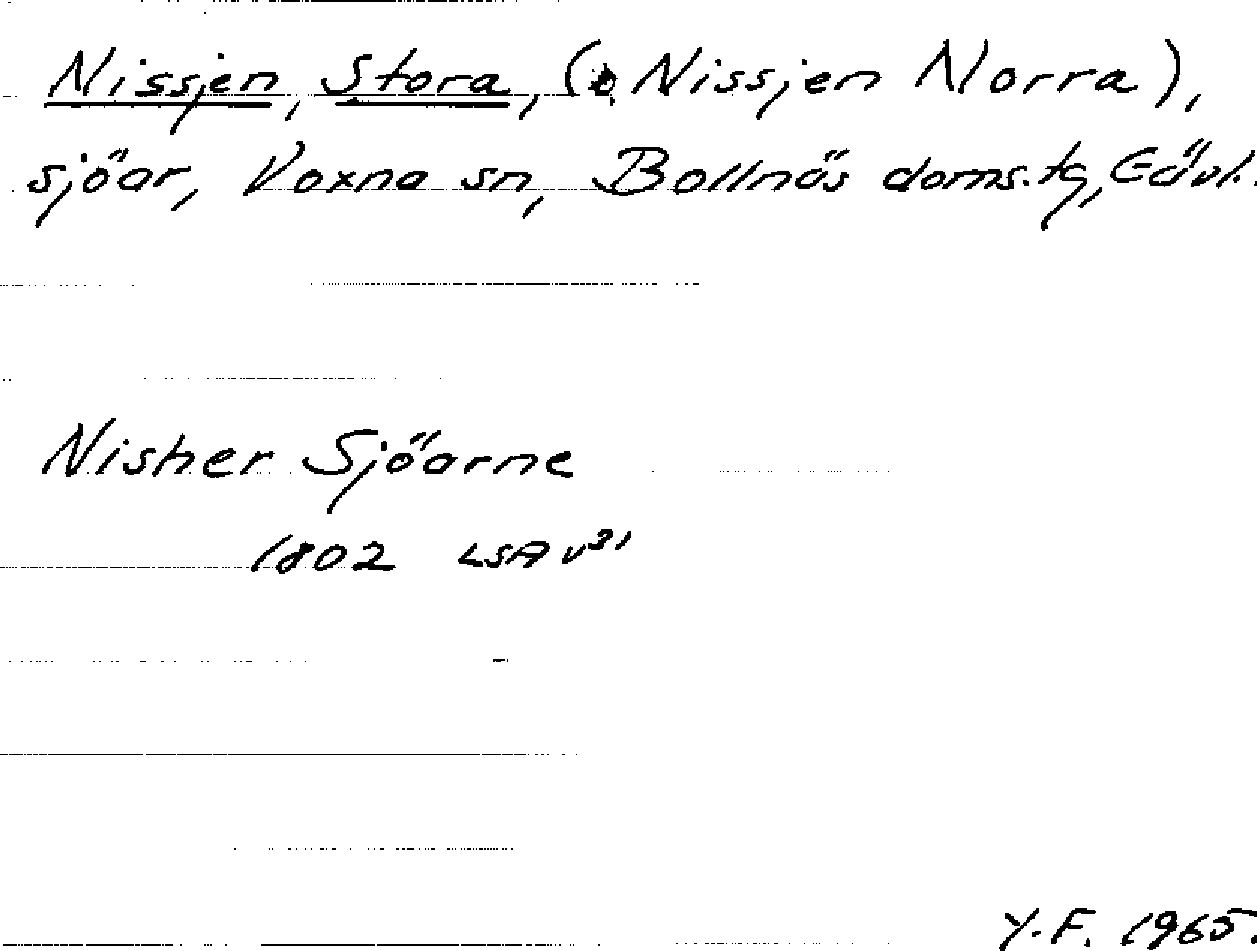 Nissjen, Stora, (o Nissjen Norra),
sjöar, Voxna sn, Bollnäs doms.tg, Gävl.
Nisher Sjöarne
1802 LSA v31
Y.F. 1965